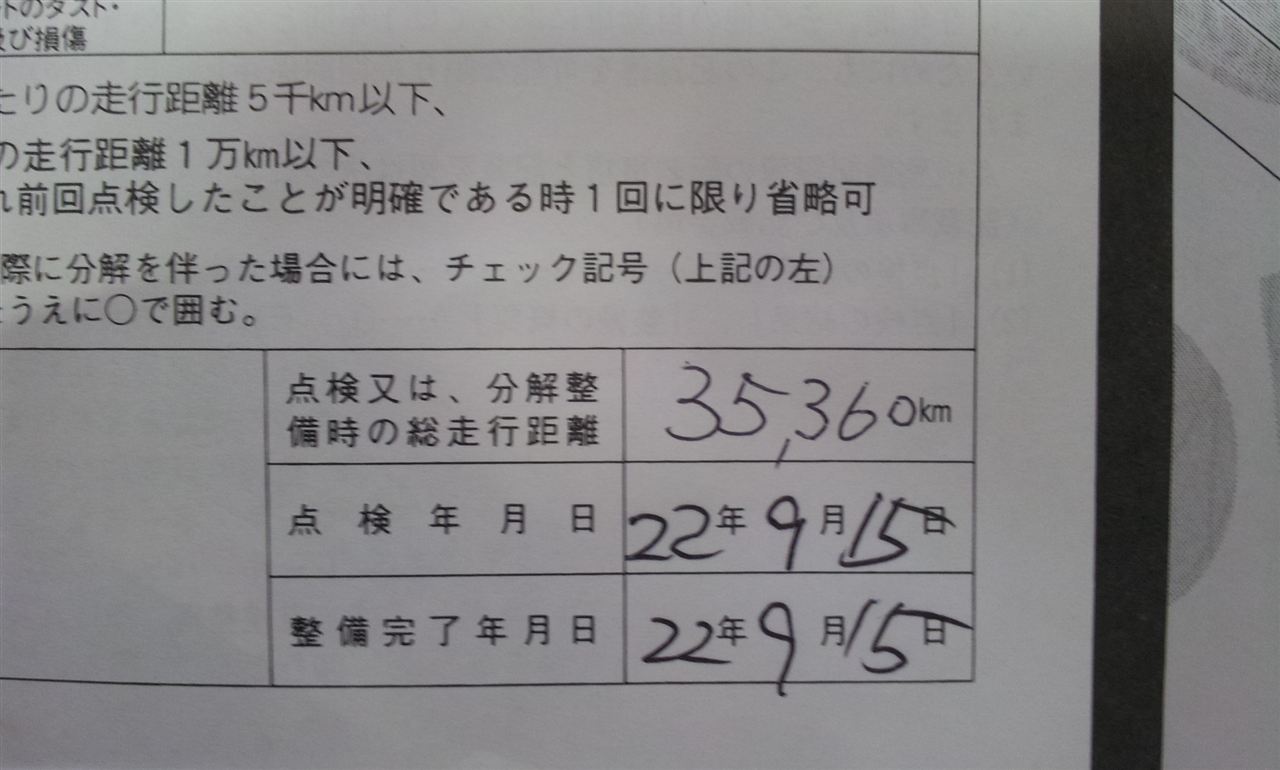 トのダスト・
及び損傷
たりの走行距離5千km以下、
の走行距離1万km以下、
れ前回点検したことが明確である時1回に限り省略可
際に分解を伴った場合には、チェック記号（上記の左）
うえに○で囲む。
点検又は、分解整
備時の総走行距離
35,360km
点検年月日
22年9月15日
整備完了年月日
22年9月15日